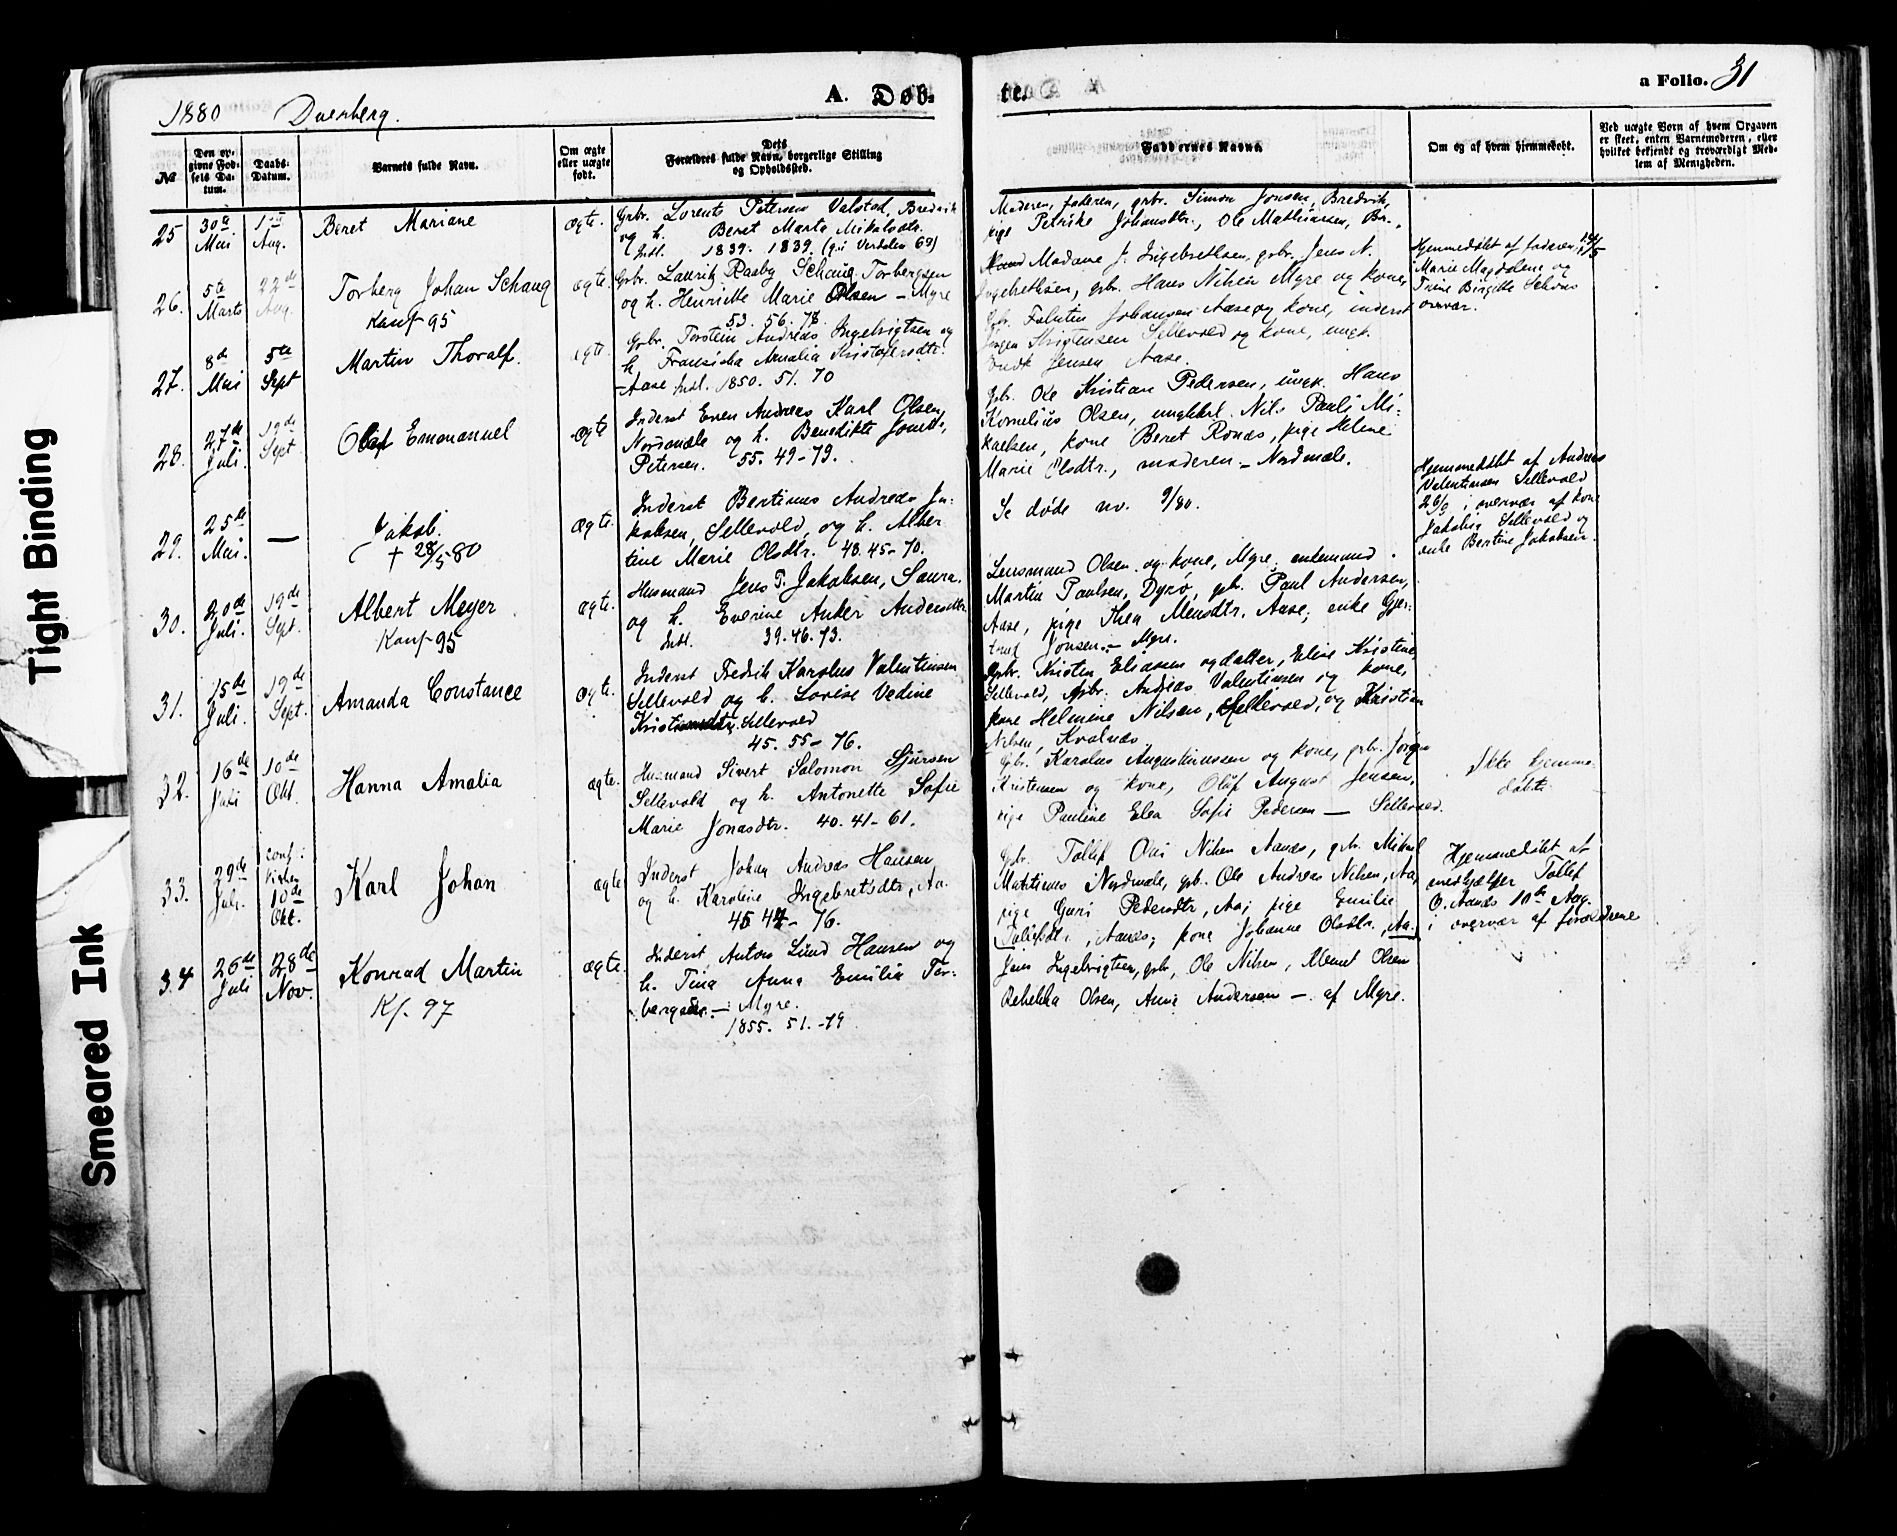 Tight Binding
Smeared Ink
1880 Dverberg.
A. Døb-
te.
a Folio. 31
№
Den op-
givne Fød-
sels Da-
tum.
Daabs-
Datum.
Barnets fulde Navn.
Om ægte
eller uægte
født.
Dets
Forældres fulde Navn, borgerlige Stilling
og Opholdssted.
Faddernes Navne.
Om og af hvem hjemmedøbt.
Ved uægte Børn af hvem Opgaven
er skeet, enten Barnemoderen, eller
hvilket bekjendt og troværdigt Med-
lem af Menigheden.
25
30te
Mai
1ste
Aug.
Beret Mariane
ægte.
Grbr. Lorents Petersen Valstad, Bredvik
og h. Beret Marta Mikalsdtr.
Indl. 1839. 1839. (gi Verdalen 69)
Moderen, faderen, grbr. Simon Jonsen, Bredvik,
pige Petrike Johansdtr., Ole Mathiasen, Br.
26.
5te
Marts
22de
Aug.
Torberg Johan Schaug
Konf 95
ægte.
Grbr. Lauritz Raaby Schaug Torbergsen
og h. Henriette Marie Olsen - Myre
53. 56. 78
Madame J. Ingebrethsen, grbr. Jens N.
Ingebrethsen, grbr. Hans Nilsen Myre og kone,
Hjemmedøbt af faderen
Marie Magdalene og
Trine Birgitte
overvar.
27.
8de
Mai
5te
Sept
Martin Thoralf.
ægte.
Grbr. Torstein Andreas Ingebrigtsen og
h. Fransiska Amalia Kristofersdtr.
- Aase Indl. 1850. 51. 70
Grb. Falentin Johansen Aase og kone, inderst
Jørgen Kristensen Sellevold og kone, ungk.
Jensen Aase.
28.
27de
Juli.
19de
Sept
Olaf Emmanuel
ægte
Inderst Enen Andreas Karl Olsen,
Nordmæle og h. Benedikte
Petersen. 55. 49-79.
grb. Ole Kristian Pedersen, ungk. Hans
Kornelius Olsen, ungkarl Nils Pauli Mi-
kaelsen, kone Beret Ronæs, pige Helene
Marie Olsdtr., moderen - Nordmæle.
29.
25de
Mai.
—
Jakob.
† 28/5-80
ægte.
Inderst Bertinus Andreas Ja-
kobsen, Sellevold, og h. Alber
tine Marie Olsdtr. 48. 45-70.
Se døde no. 9/80.
Hjemmedøbt af Andreas
Valentinsen Sellevold
26/5 i overvær af kone
Jakobia Sellevold og
enke Bertine Jakobsen.
30.
20de
Juli.
19de
Sept.
Albert Meyer
Konf 95
ægte.
Husmand Jens P. Jakobsen, Saura.
og h. Everine Anker Andersdtr
Indl. 39. 46. 73.
Lensmand Olsen og kone, Myre, enkemand
Martin Paulsen, Dyrø, grb. Paul Andersen,
Aase, pige Thea Monsdtr. Aase; enke Gjer-
trud Jonsen - Myre.
31.
15de
Juli.
19de
Sept.
Amanda Constance
ægte.
Inderst Fredrik Karolus Valentinsen
Sellevold og h. Lovise Vedine
Kristiansdtr. Sellevold
45. 55- 76.
grbr. Kristen Eliasen og datter, Eline Kristine
Sellevold, grbr. Andreas Valentinsen og kone,
kone Helmine Nilsen, Sellevold, og Kristian
Nilsen, Kvalnæs
32.
16de
Juli
10de
Okt.
Hanna Amalia
ægte.
Husmand Sivert Salomon Sjursen
Sellevold og h. Antonette Sofie
Marie Jonasdtr. 40. 41- 61.
Grb. Karolus Augustinussen og kone, grbr. Jørgen
Kristensen og kone, Oluf August Jensen,
pige Pauline Elea Sofie Pedersen — Sellevold.
Ikke hjemme-
døbt.
33.
29de
Juli.
conf. i
kirken
10de
Okt.
Karl Johan
ægte
Inderst Johan Andreas Hansen
og h. Karoline Ingebretsdtr, Aa.
45 44- 76.
Grb. Tollef Nilsen Aanæs, grb. Mikael
Martinus Nordmæle, grb. Ole Andreas Nilsen, Aa,
pige Guri Pedersdtr, Aa; pige Emilie
Tollefsdtr, Aanæs; kone Johanna Olsdtr., Aa.
Hjemmedøbt af
medhjælper Tollef
O. Aanæs 10de Aug.
i overvær af forældrene
34
26de
Juli
28de
Nov.
Konrad Martin
Kf. 97
ægte.
Inderst Anton Lund Hansen og
h. Tina Anna Emilia Tor-
bergsdtr. — Myre.
1855. 51. -79
Jens Ingebrigtsen, grb, Ole Nilsen, Klemet Olsen
Rebekka Olsen, Anna Andersen — af Myre.